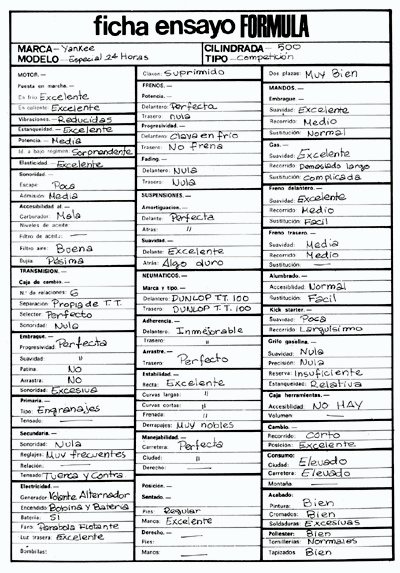 ficha ensayo FORMULA
MARCA— Yankee
CILINDRADA— 500
MODELO— Especial 24 Horas
TIPO— Competición
MOTOR.—
Puesta en marcha.—
En frío Excelente
En caliente Excelente
Vibraciones.— Reducidas
Estanqueidad.— Excelente
Potencia.— Media
Id. a bajo régimen: Sorprendente
Elasticidad.— Excelente
Sonoridad.—
Escape: Poca
Admisión Media
Accesibilidad al.—
Carburador: Mala
Niveles de aceite:
Filtro de aceite:—
Filtro aire: Buena
Bujía: Pésima
TRANSMISION.—
Caja de cambio.—
N.º de relaciones: 6
Separación: Propia de T.T.
Selector: Perfecto
Sonoridad: Nula
Embrague.—
Progresividad: Perfecta
Suavidad: "
Patina: NO
Arrastra: NO
Sonoridad: Excesiva
Primaria.—
Tipo: Engranajes
Tensado:
Secundaria.—
Sonoridad: Nula
Reglajes: Muy frecuentes
Relación:
Tensado Tuerca y Contra
Electricidad.—
Generador Volante Alternador
Encendido Bobina y Batería
Batería: SI
Faro: Parabola Flotante
Luz trasera: Excelente
Bombillas:
Claxon: Suprimido
FRENOS.—
Potencia.—
Delantero: Perfecta
Trasero: nula
Progresividad.—
Delantero: Clava en frío
Trasero: No frena
Fading.—
Delantero: Nula
Trasero: Nula
SUSPENSIONES.—
Amortiguacion.—
Delante: Perfecta
Atras: "
Suavidad.—
Delante: Excelente
Atrás: Algo duro
NEUMATICOS.—
Marca y tipo.—
Delantero: DUNLOP TT. 100
Trasero: DUNLOP TT. 100
Adherencia.—
Delantero: Inmejorable
Trasero: "
Arrastre.—
Trasero: Perfecto
Estabilidad.—
Recta: Excelente
Curvas largas: "
Curvas cortas: "
Frenada: "
Derrapajes: Muy nobles
Manejabilidad.—
Carretera: Perfecta
Ciudad: "
Derecho:
Posición.—
Sentado.—
Pies: Regular
Manos: Excelente
Derecho.—
Pies:
Manos:
Dos plazas: Muy Bien
MANDOS.—
Embrague.—
Suavidad: Excelente
Recorrido: Medio
Sustitución: Normal
Gas.—
Suavidad: Excelente
Recorrido: Demasiado largo
Sustitución: Complicada
Freno delantero.—
Suavidad: Excelente
Recorrido: Medio
Sustitución: Facil
Freno trasero.—
Suavidad: Media
Recorrido: Media
Sustitución:
Alumbrado.—
Accesibilidad: Normal
Sustitución: Facil
Kick starter.—
Suavidad: Poca
Recorrido: Larguísimo
Grifo gasolina.—
Suavidad: Nula
Precisión: Nula
Reserva: Insuficiente
Estanqueidad: Relativa
Caja herramientas.—
Accesibilidad: NO HAY
Volumen
Cambio.—
Recorrido: Corto
Posición: Excelente
Consumo:
Ciudad: Elevado
Carretera: Elevado
Montaña:
Acabado:
Pintura: Bien
Cromados: Bien
Soldaduras: Excesivas
Poliester: Bien
Tornillerías Normales
Tapizados Bien